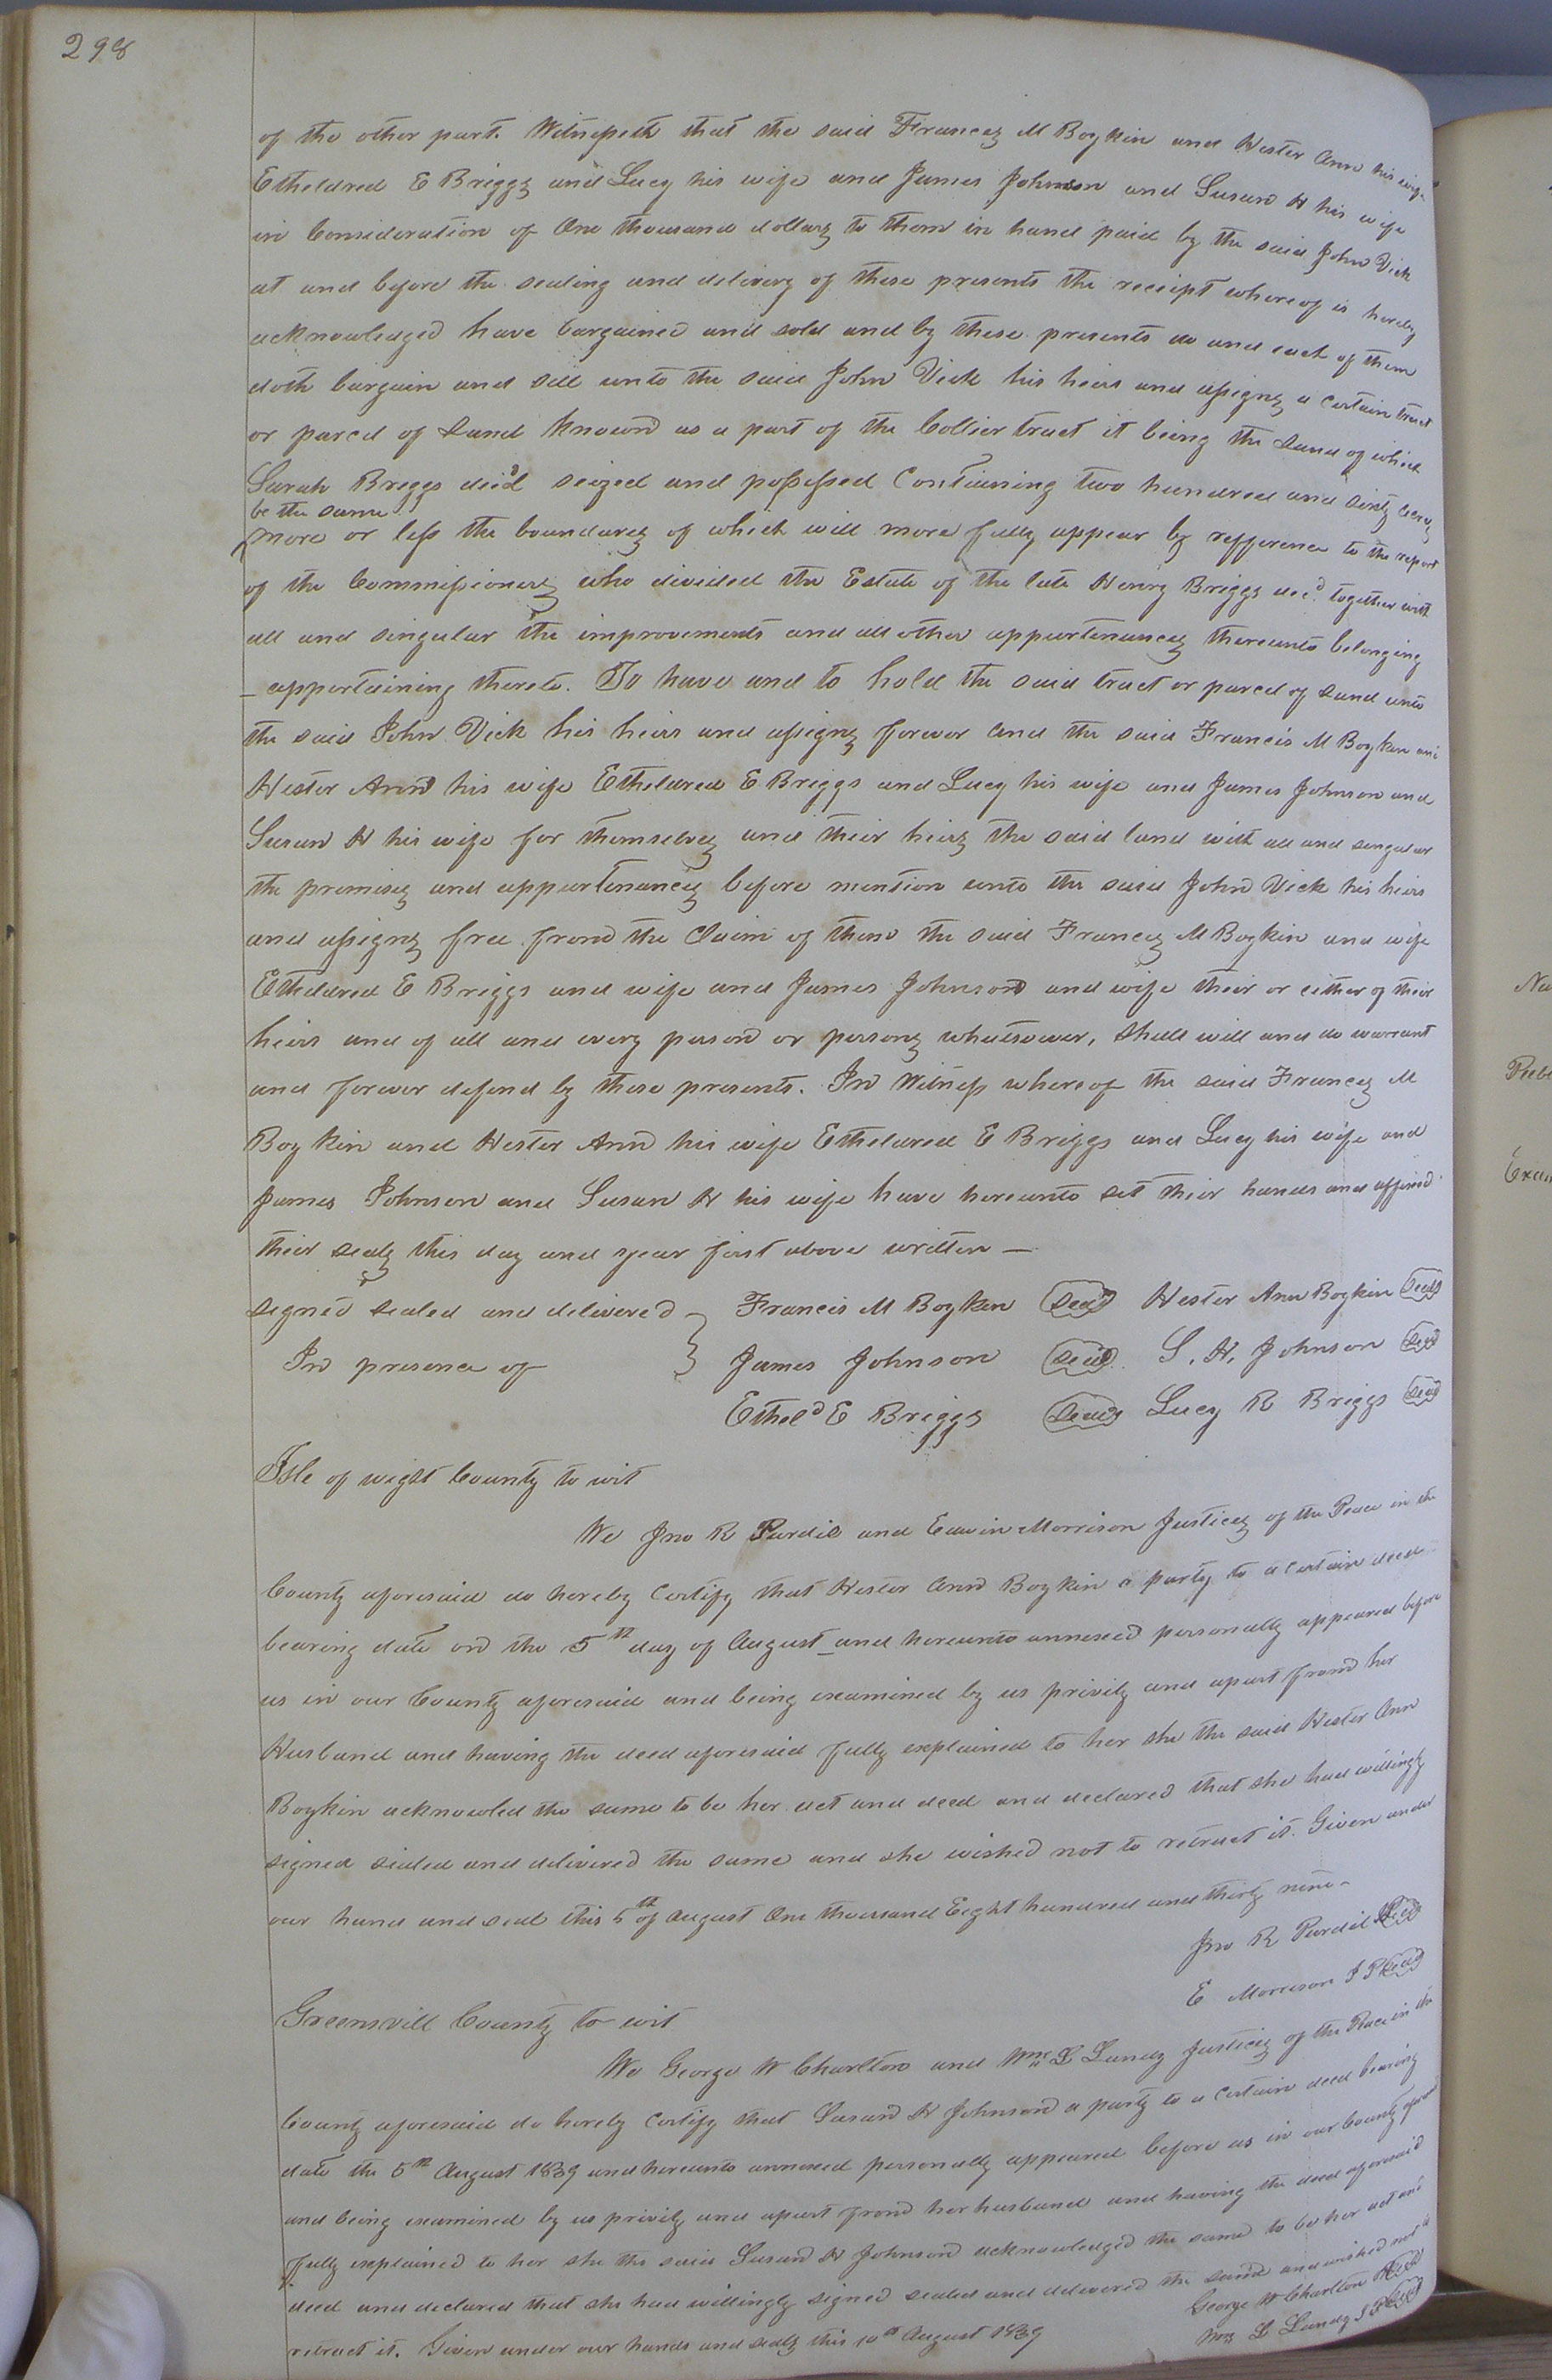 298
of the other part. Witnesseth that the said Frances M Boykin and Hester Ann his wife
Etheldred E Briggs and Lucy his wife and James Johnson and Susan H his wife
in Consideration of One thousand dollars to them in hand paid by the said John Vick
at and before the sealing and delivery of these presents the receipt whereof is hereby
acknowledged have bargained and sold and by these presents do and each of them
doth bargain and sell unto the said John Vick his heirs and assigns a certain tract
or parcel of Land known as a part of the Collier tract it being the Land of which
Sarah Briggs dec'd seized and possessed Containing two hundred and sixty acres
be the same
more or less the boundarys of which will more fully appear by refference to the report
of the Commissioners who divided the Estate of the late Henry Briggs decd together with
all and singular the improvements and all other appurtenances thereunto belonging
appertaining thereto. To have and to hold the said tract or parcel of Land unto
the said John Vick his heirs and assigns forever And the said Francis M Boykin and
Hester Ann his wife Etheldred E Briggs and Lucy his wife and James Johnson and
Susan H his wife for themselves and their heirs the said land with all and singular
the premises and appurtenances before mention unto the said John Vick his heirs
and assigns free from the Claim of them the said Frances M Boykin and wife
Etheldred E Briggs and wife and James Johnson and wife their or either of their
heirs and of all and every person or persons whatsoever, shall will and do warrant
and forever defend by these presents. In Witness whereof the said Frances M
Boykin and Hester Ann his wife Etheldred E Briggs and Lucy his wife and
James Johnson and Susan H his wife have hereunto set their hands and affixed
their seals this day and year first above written —
signed sealed and delivered } Francis M Boykin Seal Hester Ann Boykin Seal
In presence of } James Johnson Seal S. H. Johnson Seal
Etheld E Briggs Seal Lucy R Briggs Seal
Isle of wight County to wit
We Jno R Purdie and Edwin Morrison Justices of the Peace in the
County aforesaid do hereby Certify that Hester Ann Boykin a party to a certain deed
bearing date on the 5th day of August and hereunto annexed personally appeared before
us in our County aforesaid and being examined by us privily and apart from her
Husband and having the deed aforesaid fully explained to her she the said Hester Ann
Boykin acknowled the same to be her act and deed and declared that she had willingly
signed sealed and delivered the same and she wished not to retract it. Given under
our hand and seal this 5th of August One thousand Eight hundred and thirty nine -
Jno R Purdie Seal
E Morrison J P Seal
Greensvill County to wit
We George W Charlton and Wm L Lundy Justices of the Peace in the
County aforesaid do hereby Certify that Susan H Johnson a party to a certain deed bearing
date the 5th August 1839 and hereunto annexed personally appeared before us in our County aforesaid
and being examined by us privily and apart from her husband and having the deed aforesaid
fully explained to her she the said Susan H Johnson acknowledged the same to be her act and
deed and declared that she had willingly signed sealed and delivered the same and wished not to
retract it. Given under our hands and seals this 10th August 1839
George W Charlton Seal
Wm L Lundy J P Seal